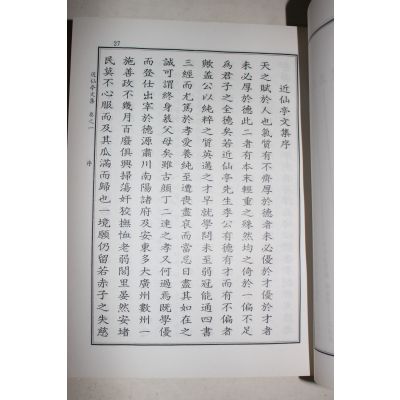 27
近仙亭文集序
天之賦於人也氣質有不齊厚於德者未必優於才優於才者
未必厚於德此二者有本末輕重之殊然均之於一偏不足
為君子之全德矣若近仙亭先生李公有德有才而有不偏者
歟盖公以純粹之質英邁之才早就學問未至弱冠能通四書
三經而尤篤於孝愛養純至遭喪盡哀而當忌日盡其如在之
誠可謂終身慕父母矣雖古顔丁二連之孝又何過焉既學優
而登仕出宰於德源肅川南陽諸府及安東多大廣州數州一
施善政不幾月百廢俱興掃蕩奸猾撫恤老弱閭里晏然安堵
民莫不心服而及其瓜滿而歸也一境願仍留若赤子之失慈
近仙亭文集 卷之一 序